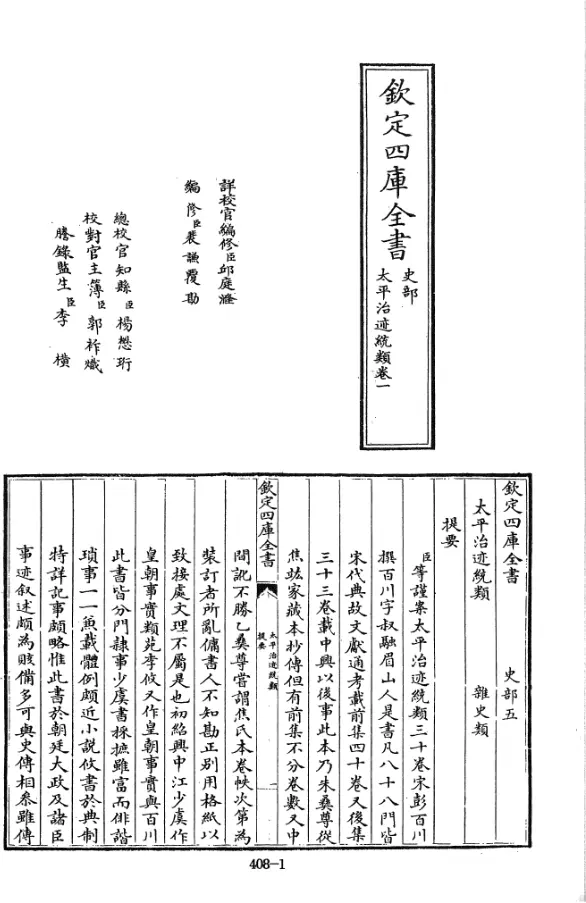 欽定四庫全書
史部
太平治迹統類卷一
詳校官編修臣邱庭漋
編修臣裴謙覆勘
總校官知縣臣楊懋珩
校對官主簿臣郭祚熾
謄錄監生臣李橫
欽定四庫全書 史部五
太平治迹統類 雜史類
提要
臣等謹案太平治迹統類三十卷宋彭百川
撰百川字叔融眉山人是書凡八十八門皆
宋代典故文獻通考載前集四十卷又後集
三十三卷載中興以後事此本乃朱彝尊從
焦竑家藏本抄傳但有前集不分卷數又中
欽定四庫全書
太平治迹統類
提要
一
間訛不勝乙彝尊嘗謂焦氏本卷帙次第為
裝訂者所亂傭書人不知勘正别用格紙以
致接處文理不屬是也初紹興中江少虞作
皇朝事實類苑李攸又作皇朝事實與百川
此書皆分門隸事少虞書採摭雖富而俳諧
瑣事一一兼載體例頗近小説攸書於典制
特詳記事頗略惟此書於朝廷大政及諸臣
事迹叙述頗為賅備多可與史傳相叅雖傳
408-1